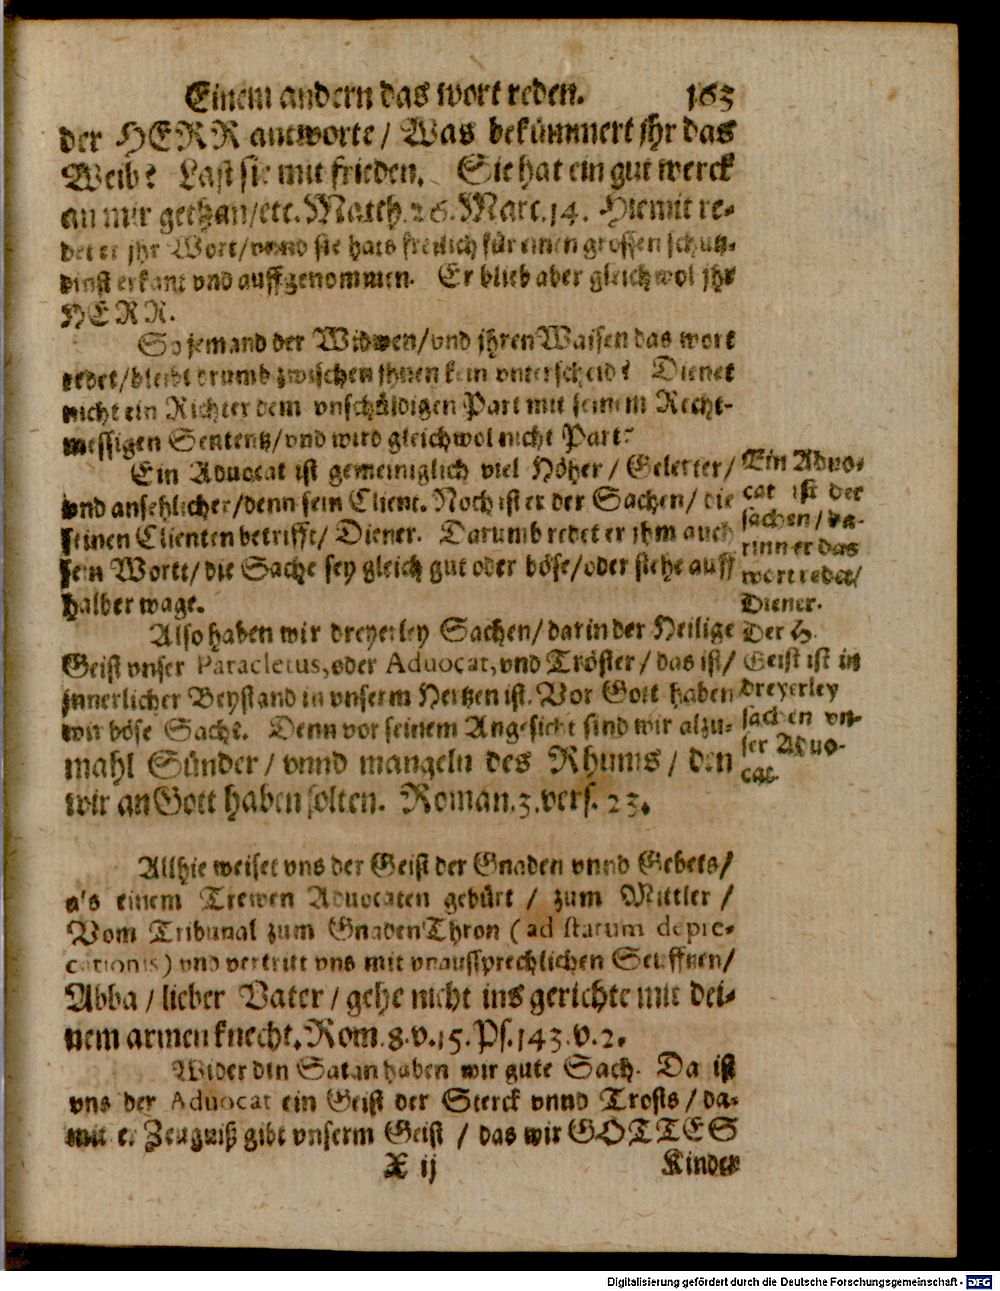 Einem andern das wort reden. 163
der HERR antworte / Was bekümmert jhr das
Weib? Last sie mit frieden. Sie hat ein gut werck
an mir gethan/etc. Matth. 26. Marc. 14. Hiemit re-
det er jhr Wort/vnnd sie hats freilich für einen grossen schutz-
dinst erkant vnd auffgenommen. Er blieb aber gleichwol jhr
HERR.
So jemand der Widwen/vnd jhren Waisen das wort
redet/bleibt drumb zwischen jhnen kein vnterscheid? Dienet
nicht ein Richter dem vnschüldigen Part mit seinem Recht-
messigen Sententz/vnd wird gleichwol nicht Part?
Ein Aduocat ist gemeiniglich viel Höher / Gelerter/
vnd ansehlicher/denn sein Client. Noch ist er der Sachen/ die
seinen Clienten betrifft/ Diener. Darumb redet er jhm auch
sein Wortt/ die Sache sey gleich gut oder böse/oder stehe auff
halber wage.
Ein Aduo-
cat ist der
sachen / da-
rinn er das
wort redet/
Diener.
Also haben wir dreyerley Sachen/ darin der Heilige
Geist vnser Paracletus, oder Aduocat, vnd Tröster / das ist/
jnnerlicher Beystand in vnserm Hertzen ist. Vor Gott haben
wir böse Sache. Denn vor seinem Angesicht sind wir alzu-
mahl Sünder / vnnd mangeln des Rhums / den
wir an Gott haben solten. Roman. 3. vers. 23.
Der H.
Geist ist in
dreyerley
sachen vn-
ser Aduo-
cat.
Allhie weiset vns der Geist der Gnaden vnnd Gebets/
als einem Trewen Aduocaten gebürt / zum Mittler /
Vom Tribunal zum GnadenThron (ad statum depre-
cationis) vnd vertritt vns mit vnaussprechlichen Seuffzen/
Abba / lieber Vater / gehe nicht ins gerichte mit dei-
nem armen knecht. Rom. 8. v. 15. Ps. 143. v. 2.
Wider den Satan haben wir gute Sach. Da ist
vns der Aduocat ein Geist der Sterck vnnd Trosts / da-
mit er Zeugniß gibt vnserm Geist / das wir GOTTES
X ij Kinder
Digitalisierung gefördert durch die Deutsche Forschungsgemeinschaft - DFG